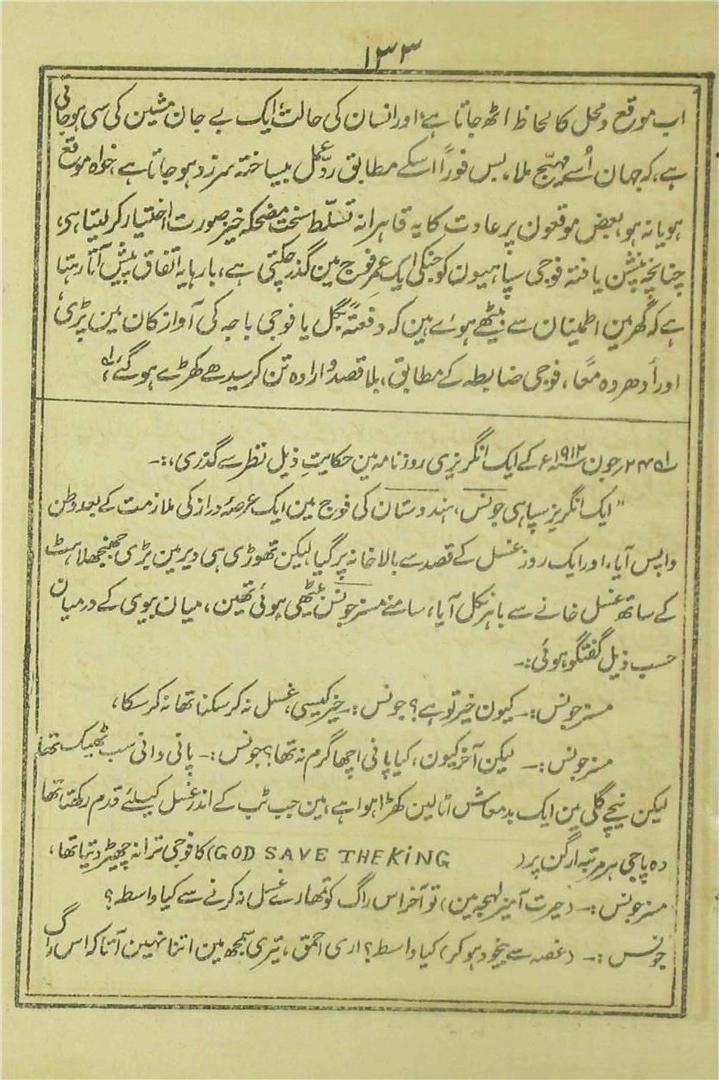 ۱۳۳
اب موقع و محل کا لحاظ اٹھ جاتا ہے، اور انسان کی حالت ایک بے جان مشین کی سی ہو جاتی
ہے، کہ جہان اُسے مہیّج ملا، بس فوراً اسکے مطابق ردِّ عمل بیساختہ سرزد ہو جاتا ہے خواہ موقع
ہو یا نہ ہو، بعض موقعون پر عادت کا یہ قاہرانہ تسلّط سخت مضحکہ خیز صورت اختیار کر لیتا ہی،
چنانچہ پنشن یافتہ فوجی سپاہیون کو جنکی ایک عمر فوج مین گذر چکتی ہے، بارہا یہ اتفاق پیش آتا رہتا
ہے کہ گھر مین اطمینان سے بیٹھے ہوئے ہین کہ دفعۃً بگل یا فوجی باجہ کی آواز کان مین پڑی
اور اُدھر وہ معًا، فوجی ضابطہ کے مطابق، بلا قصد و ارادہ تن کر سیدھے کھڑے ہو گئے،
۲۴ جون ۱۹۱۲ء کے ایک انگریزی روزنامہ مین حکایتِ ذیل نظر سے گذری،:۔
”ایک انگریز سپاہی جونس، ہندوستان کی فوج مین ایک عرصۂ دراز کی ملازمت کے بعد وطن
واپس آیا، اور ایک روز غسل کے قصد سے بالاخانہ پر گیا لیکن تھوڑی ہی دیر مین بڑی جھنجھلاہٹ
کے ساتھ غسل خانے سے باہر نکل آیا، سامنے مسز جونس بیٹھی ہوئی تھین، میان بیوی کے درمیان
حسب ذیل گفتگو ہوئی:۔
مسز جونس:۔ کیون خیر تو ہے؟ جونس:۔ خیر کیسی، غسل نہ کر سکنا تھا نہ کر سکا،
مسز جونس:۔ لیکن آخر کیون، کیا پانی اچھا گرم نہ تھا؟ جونس:۔ پانی وانی سب ٹھیک تھا
لیکن نیچے گلی مین ایک بدمعاش اٹالین کھڑا ہوا ہے، مین جب ٹب کے اندر غسل کیلئے قدم رکھتا تھا
وہ پاجی ہر مرتبہ ارگن پر (GOD SAVE THE KING) کا فوجی ترانہ چھیڑ دیتا تھا،
مسز جونس:۔ (حیرت آمیز لہجہ مین) تو آخر اس راگ کو تمھارے غسل نہ کرنے سے کیا واسطہ؟
جونس:۔ (غصہ سے بیخود ہو کر) کیا واسطہ؟ اری احمق، تیری سمجھ مین اتنا نہین آتا کہ اس راگ